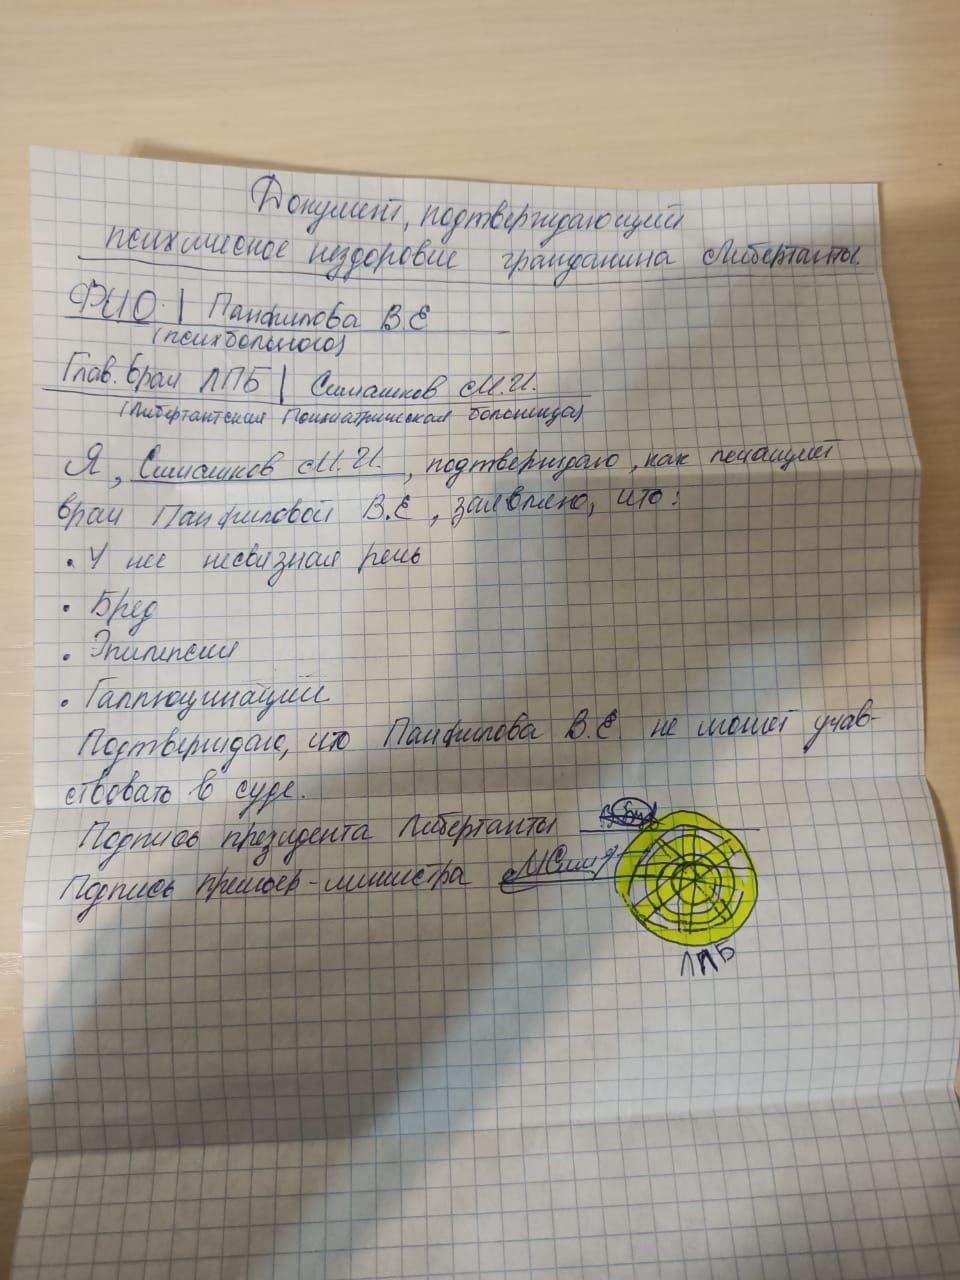 Документ, подтверждающий
психическое нездоровие гражданина Либертанты.
ФИО | Панфилова В.Е
(психбольного)
Глав. врач ЛПБ | Симашков М.И.
(Либертантская Психиатрическая больница)
Я, Симашков М.И., подтверждаю, как лечащий
врач Панфиловой В.Е, заявляю, что:
• У нее несвязная речь
• Бред
• Эпилепсия
• Галлюцинации
Подтверждаю, что Панфилова В.Е. не может учав-
ствовать в суде.
Подпись президента Либертанты
Подпись премьер-министра МСим
ЛПБ